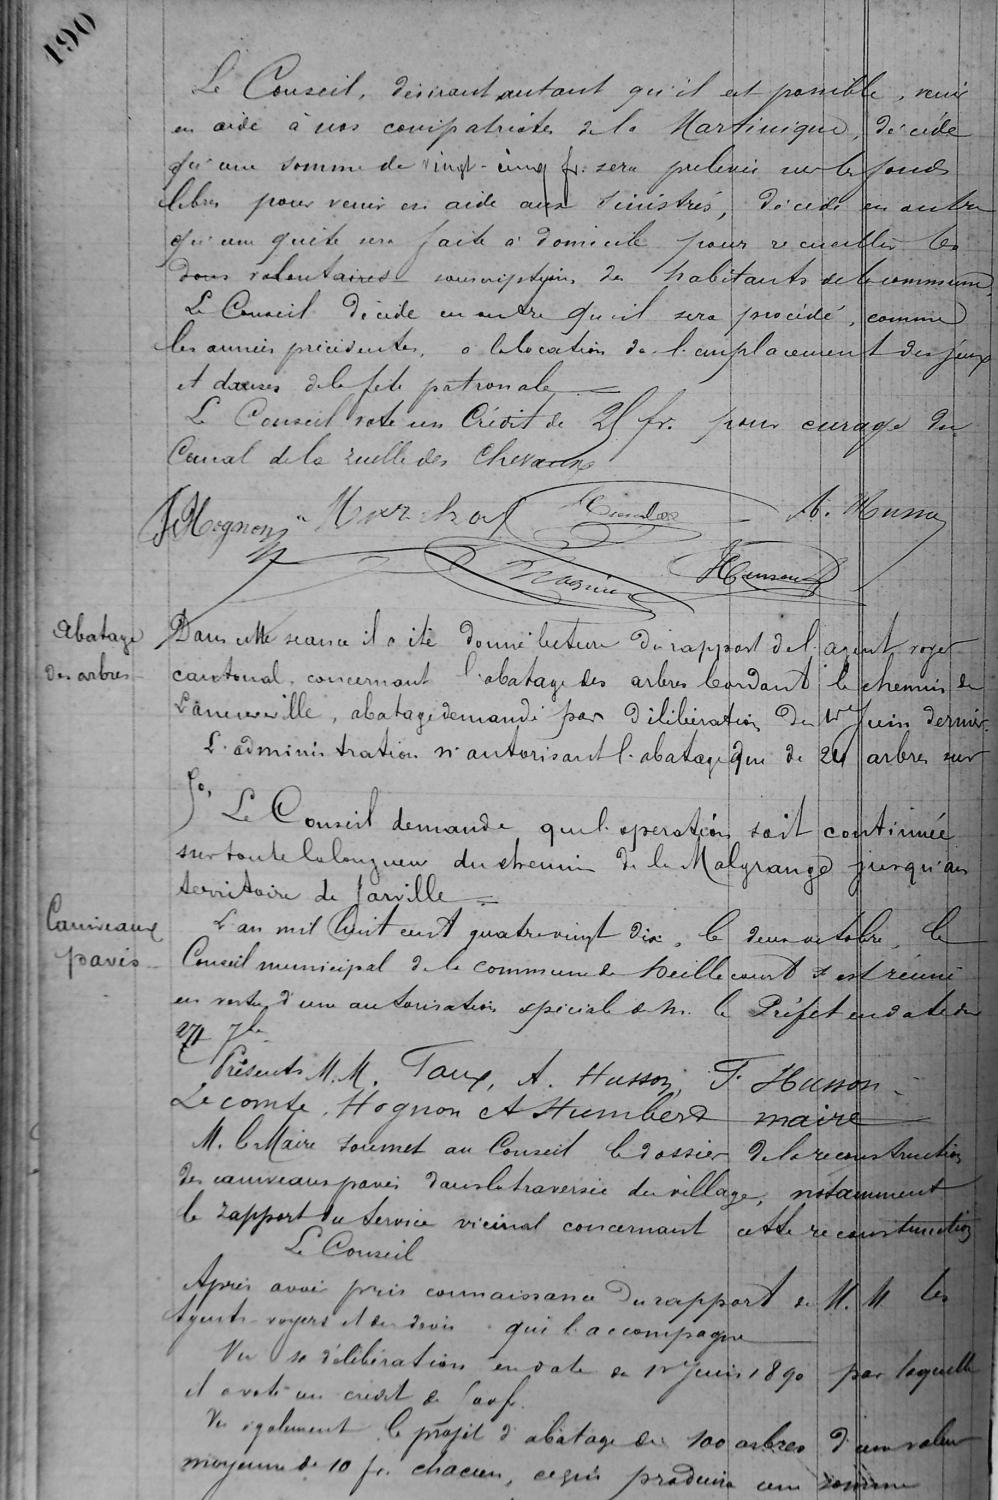 190
Le Conseil, désirant autant qu'il est possible, venir
en aide à nos compatriotes de la Martinique, décide
qu'une somme de vingt-cinq fr. sera prelevée sur les fonds
libres pour venir en aide aux sinistrés, décide en outre
qu'une quête sera faite à domicile pour recueillir les
dons volontaires souscriptions des habitants de la commune.
Le Conseil décide en outre qu'il sera procédé, comme
les années précédentes, à la location de l'emplacement des jeux
et danses de la fete patronale
Le Conseil vote un Crédit de 25 fr. pour curage du
Canal de la ruelle des Chevaux
Hognon A. Husson
Abatage
des arbres
Dans cette seance il a été donné lecture du rapport de l'agent voyer
cantonal concernant l'abatage des arbres bordant le chemin de
Laneuveville, abatage demandé par délibération du 1er Juin dernier.
L'administration n'autorisant l'abatage que de 24 arbres sur
50, Le Conseil demande que l'operation soit continuée
sur toute la longueur du chemin de la Malgrange jusqu'au
territoire de Jarville
Caniveaux
pavés
L'an mil huit cent quatre vingt dix, le deux octobre, le
Conseil municipal de la commune de Heillecourt s'est réuni
en vertu d'une autorisation spéciale de M. le Préfet en date du
27 7bre
Présents M.M. Taux, A. Husson, F. Husson
Lecomte, Hognon et Humbert maire
M. le Maire soumet au Conseil le dossier de la reconstruction
des caniveaux pavés dans la traversée du village, notamment
le rapport du Service vicinal concernant cette reconstruction
Le Conseil
Après avoir pris connaissance du rapport de M.M. les
Agents-voyers et du devis qui l'accompagne
Vu sa délibération en date du 1er Juin 1890 par laquelle
il a voté un crédit de
Vu également le projet d'abatage de 100 arbres d'une valeur
moyenne de 10 fr. chacun, ce qui produira une somme